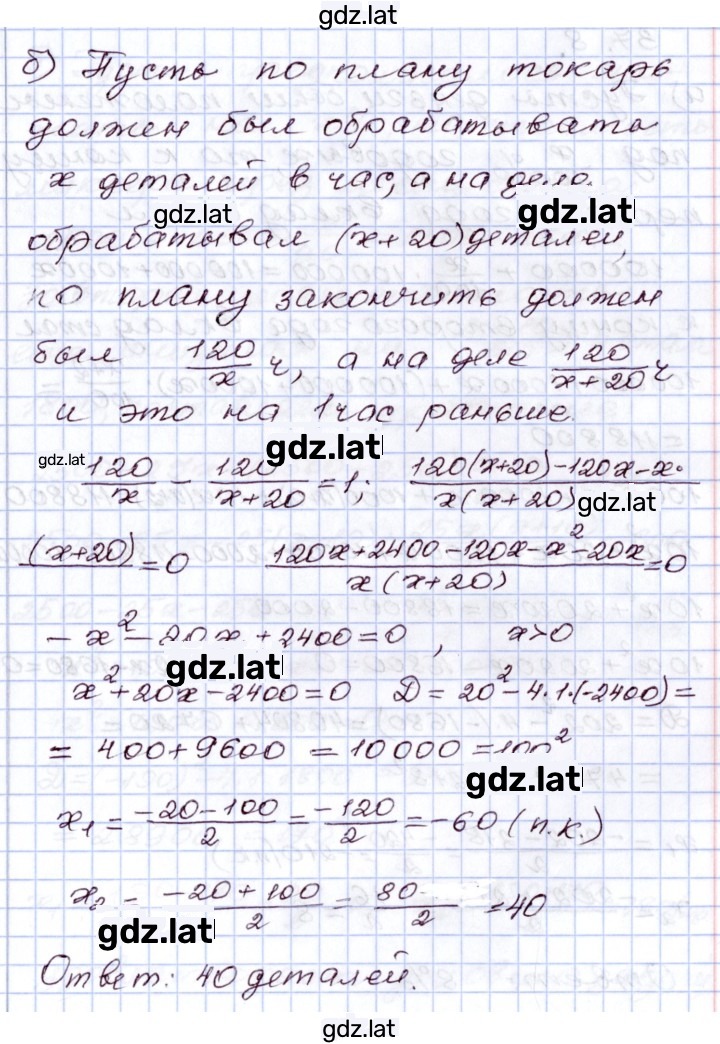 gdz.lat
б) Пусть по плану токарь
должен был обрабатывать
x деталей в час, а на деле
gdz.lat gdz.lat
обрабатывал (x+20) деталей,
по плану закончить должен
был 120/x ч, а на деле 120/(x+20) ч
и это на 1 час раньше.
gdz.lat gdz.lat
120/x - 120/(x+20) = 1; 120(x+20)-120x-x·/x(x+20)
gdz.lat
(x+20)/ =0 (120x+2400-120x-x²-20x)/(x(x+20)) =0
-x²-20x+2400=0, x>0
gdz.lat
x²+20x-2400=0 D=20²-4·1·(-2400)=
=400+9600=10000=100²
gdz.lat
x₁=(-20-100)/2=-120/2=-60 (п.к.)
x₂=(-20+100)/2=80/2=40
gdz.lat
Ответ: 40 деталей.
gdz.lat